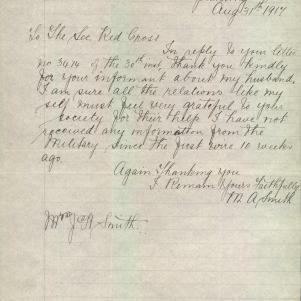 Aug 31th 1917
To The Sec Red Cross
In reply to your letter
no 3414 of the 30th inst, thank you kindly
for your informant about my husband,
I am sure all the relations like my
self must feel very grateful to your
society for their help I have not
received any information from the
Military since the first wire 10 weeks
ago.
Again Thanking you
I Remain Yours Faithfully
M. A Smith
Mrs J. A Smith.